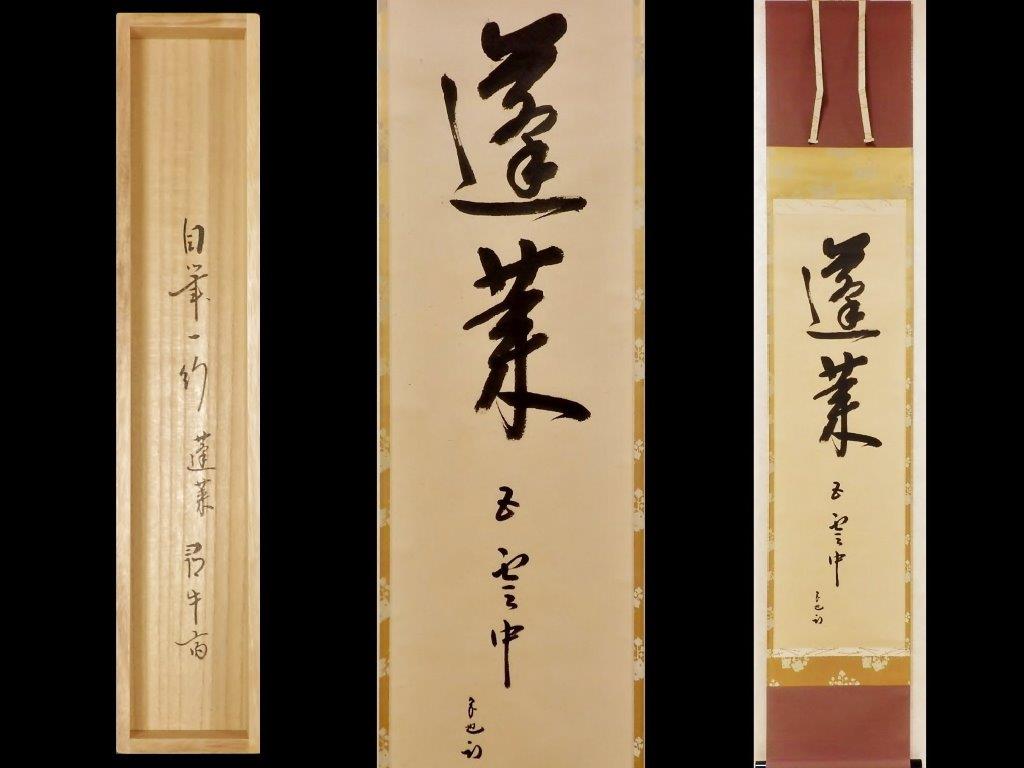 自筆一行 蓬莱 尋牛斎
蓬莱
五雲中
蓬莱
五雲中